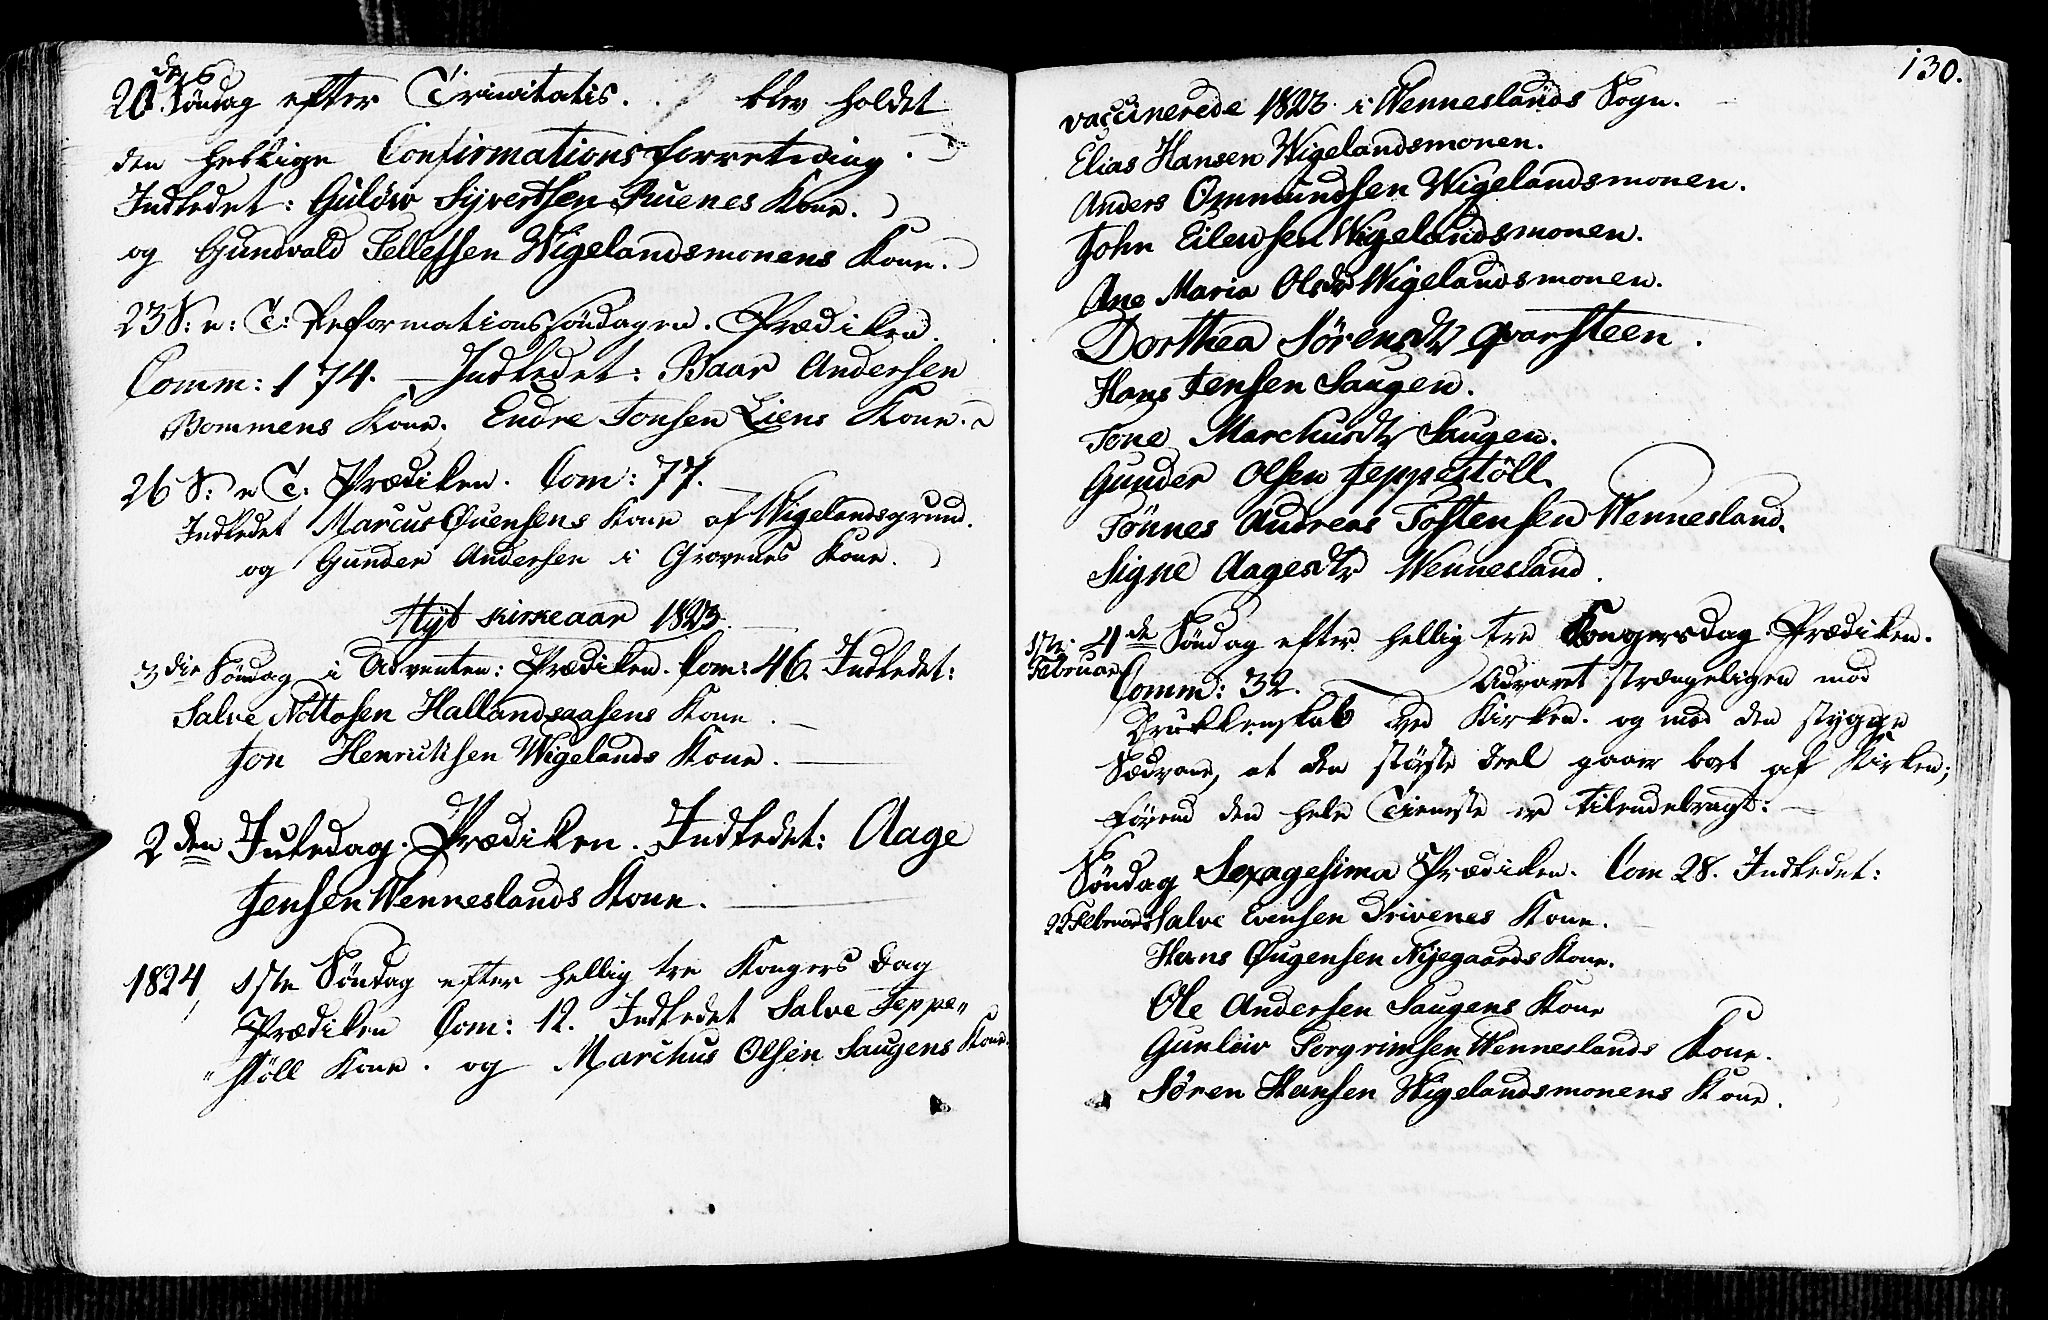 20de Søndag efter Trinitatis. blev holdet
den hellige Confirmationsforretning.
Indledet: Guløw Syvertsen Ruenes Kone.
og Gundvald Tellefsen Wigelandsmonens Kone.
23 S: e: T: Reformationssøndagen. Prædiken.
Comm: 174. Indledet: Baar Andersen
Bommens Kone. Endre Jonsen Liens Kone.
26 S: e T: Prædiken. Com: 77.
Indledet Marcus Ouensens Kone af Wigelandsgrund.
og Gunder Andersen i Grovenes Kone.
Nyt Kirkeaar 1823.
3die Søndag i Adventen: Prædiken. Com: 46. Indledet:
Salve Nottosen Hallandsaasens Kone.
Jon Henriksen Wigelands Kone.
2den Juledag. Prædiken. Indledet: Aage
Jensen Wenneslands Kone.
1824 1ste Søndag efter hellig tre Kongers Dag
Prædiken Com: 12. Indledet Salve Jeppe„
„støll Kone. og Marchus Olsen Saugens Kone.
130.
vaccinerede 1823. i Wenneslands Sogn.
Elias Hansen Wigelandsmonen.
Anders Ommundsen Wigelandsmonen.
John Eilewsen Wigelandsmonen.
Ane Maria Olsdr Wigelandsmonen.
Dorthea Sørensdtr Qvarsteen.
Hans Jensen Saugen.
Tone Marchusdtr Saugen.
Gunder Olsen Jeppestöll.
Tønnes Andreas Tostensen Wennesland.
Signe Aagesdtr Wennesland.
1ste Februar
4de Søndag efter hellig tre Kongersdag. Prædiken.
Comm: 32. Advaret strængeligen mod
Drukkenskab ved Kirken. og mod den stygge
Sædvane, at den største Deel gaaer bort af Kirken;
førend den hele Tieneste er tilendebragt:
Søndag Sexagesima Prædiken. Com 28. Indledet:
22 Februar Salve Evensen Drivenes Kone.
Hans Øugensen Nyegaards Kone.
Ole Andersen Saugens Kone
Gunløw Torgrimsen Wenneslands Kone.
Sören Hansen Wigelandsmonens Kone.